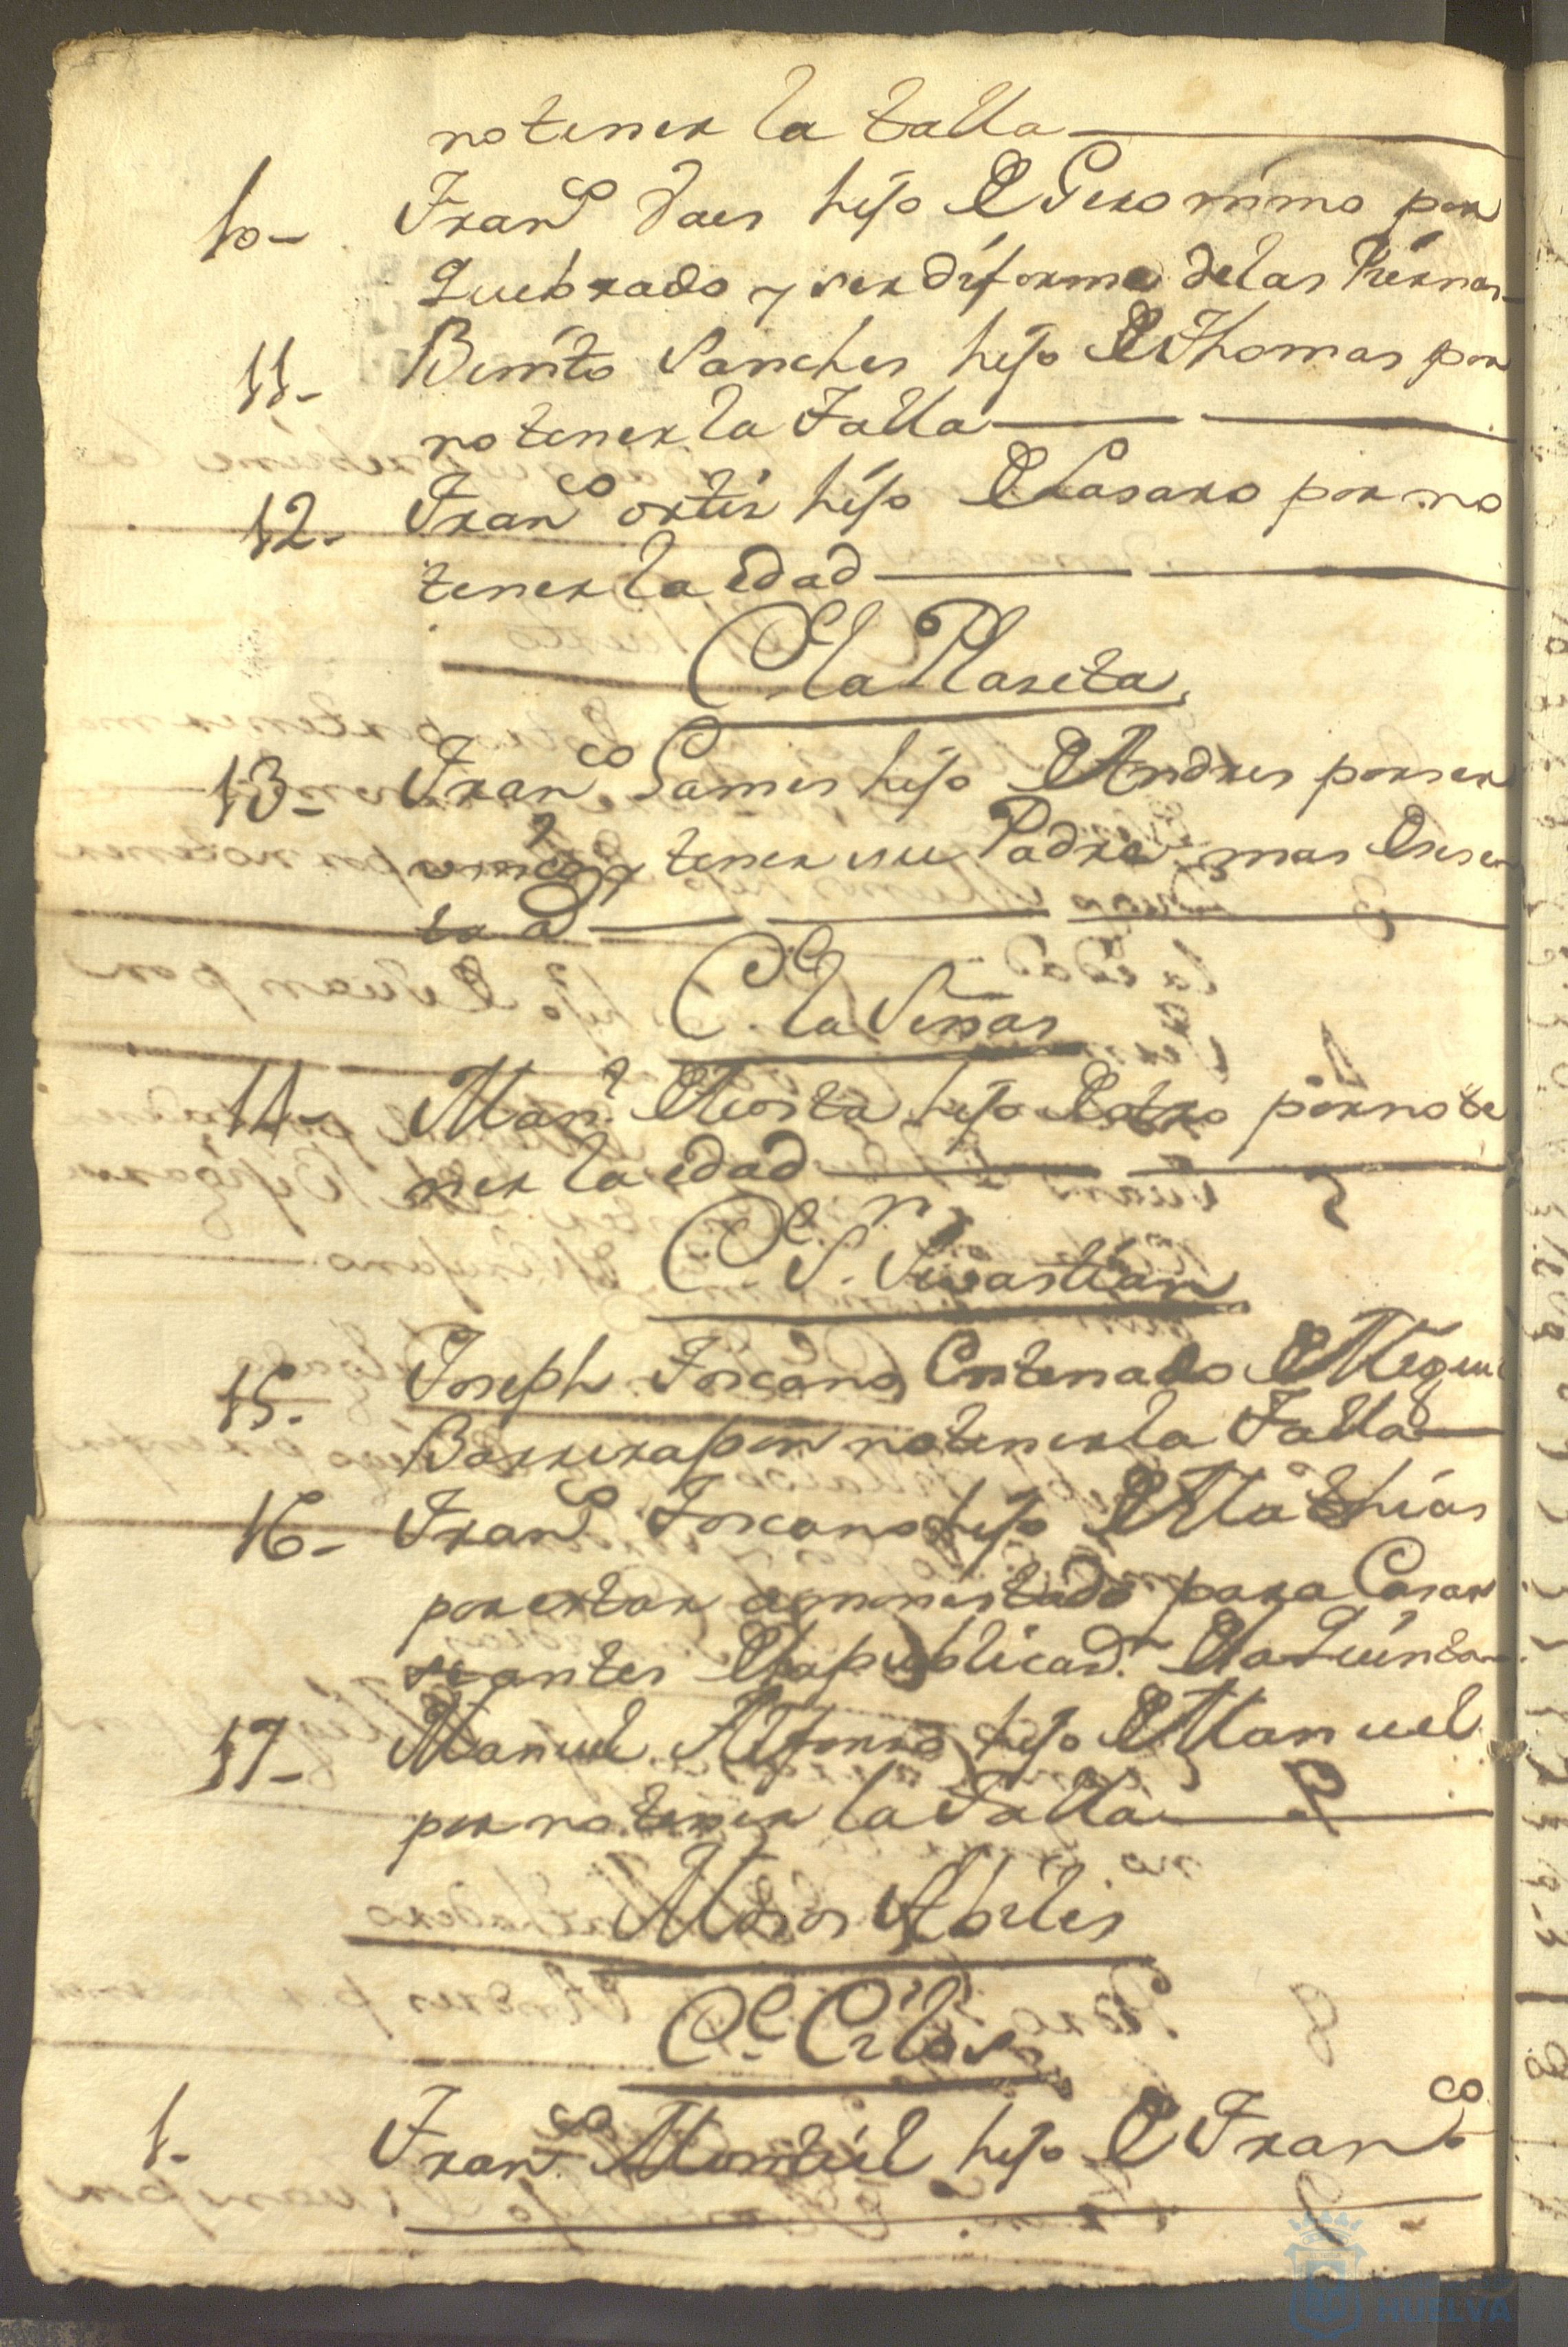 no tener la talla
10- Fran.co Daes hijo de Geronimo por
Quebrado y ser disforme de las Piernas
11- Benito Sanches hijo de Thomas por
no tener la Talla
12- Fran.co ortis hijo de Lasaro por no
tener la edad
C.e la Plaseta
13- Fran.co Games hijo de Andres por ser
unico y tener su Padre mas de sesen
ta a.
C.e la
14- Man.l de Acosta hijo de otro por no te
ner la edad
C.e S.n Sevastian
15- Joseph Toscano Entenado de
Barrera por no tener la Talla
16- Fran.co Toscano hijo de Mathias
por estar amonestado para Casar
se antes de la publicas.n de la Quinta
17- Manuel Alfonso hijo de Manuel
por no tener la Talla
Mosos Abiles
C.e
1- Fran.co Montiel hijo de Fran.co
HUELVA